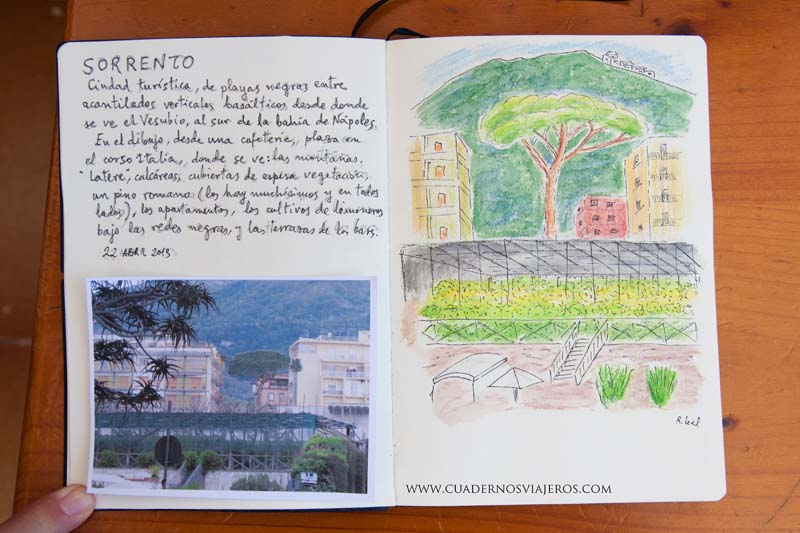 SORRENTO
Ciudad turística, de playas negras entre
acantilados verticales basálticos, desde donde
se ve el Vesubio, al sur de la bahía de Nápoles.
En el dibujo, desde una cafetería, plaza en
el corso Italia, donde se ve: las montañas
calcáreas, cubiertas de espesa vegetación
un pino romano (los hay muchísimos y en todos
lados), los apartamentos, los cultivos de limoneros
bajo las redes negras, y las terrazas de los bars.
22 ABRIL 2013
R. Leal
WWW.CUADERNOSVIAJEROS.COM